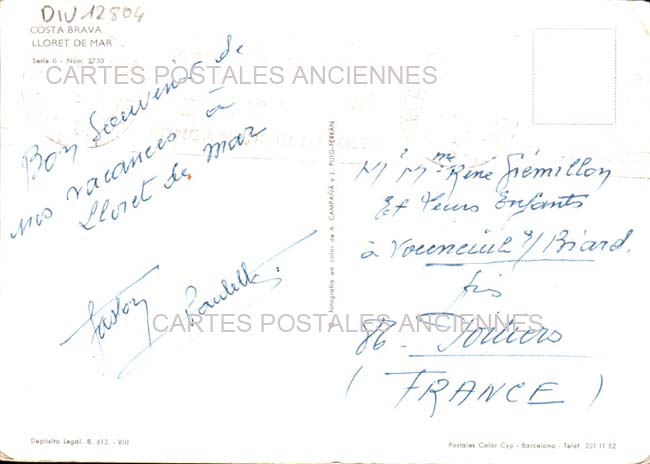 DIV 12804
COSTA BRAVA
LLORET DE MAR
Serie II - Núm. 2730
CARTES POSTALES ANCIENNES
Bon Souvenir de
nos vacances à
Lloret de mar
Gaston
CARTES POSTALES ANCIENNES
Mr Mme René Giémillon
Et Leurs Enfants
à Vouneuil s/ Biard.
86. Poitiers
(FRANCE)
fotografía en color de A. CAMPAÑÁ y J. PUIG-FERRÁN
Depósito Legal. B. 613. - VIII
Postales Color Cyp - Barcelona - Teléf. 221 11 52